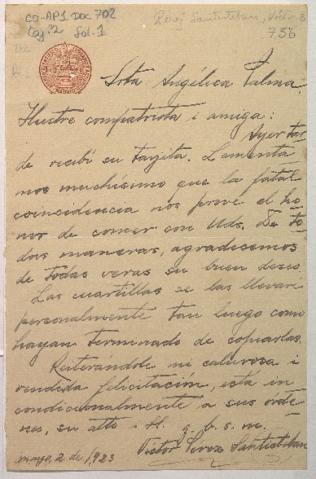 CG-AP1 Doc 702
Caj. 2 Fol. 1
Perez Santisteban, Víctor
756
Srta Angélica Palma.
Ilustre compatriota i amiga:
Ayer tar
de recibí su tarjita. Lamenta
mos muchísimo que la fatal
coincidencia nos prive el ho
nor de comer con Uds. De to
das maneras, agradecemos
de todas veras su buen deseo.
Las cuartillas se las llevaré
personalmente tan luego como
hayan terminado de copiarlas.
Reiterándole mi calurosa i
rendida felicitación, está in
condicionalmente a sus órde
nes, su atto. A. q. b. s. m.
Víctor Perez Santisteban
mayo, 2 de 1923